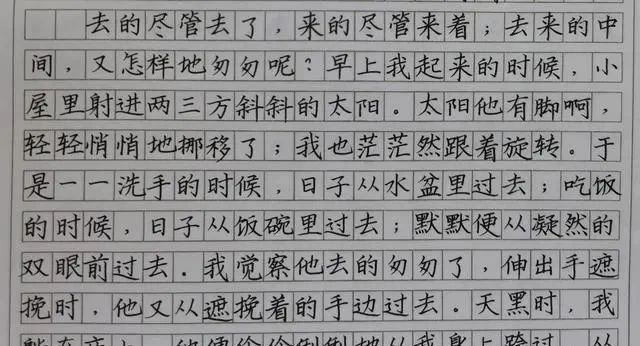 去的尽管去了，来的尽管来着；去来的中
间，又怎样地匆匆呢？早上我起来的时候，小
屋里射进两三方斜斜的太阳。太阳他有脚啊，
轻轻悄悄地挪移了；我也茫茫然跟着旋转。于
是一一洗手的时候，日子从水盆里过去；吃饭
的时候，日子从饭碗里过去；默默便从凝然的
双眼前过去。我觉察他去的匆匆了，伸出手遮
挽时，他又从遮挽着的手边过去。天黑时，我
伶伶俐俐地从我身上跨过，从